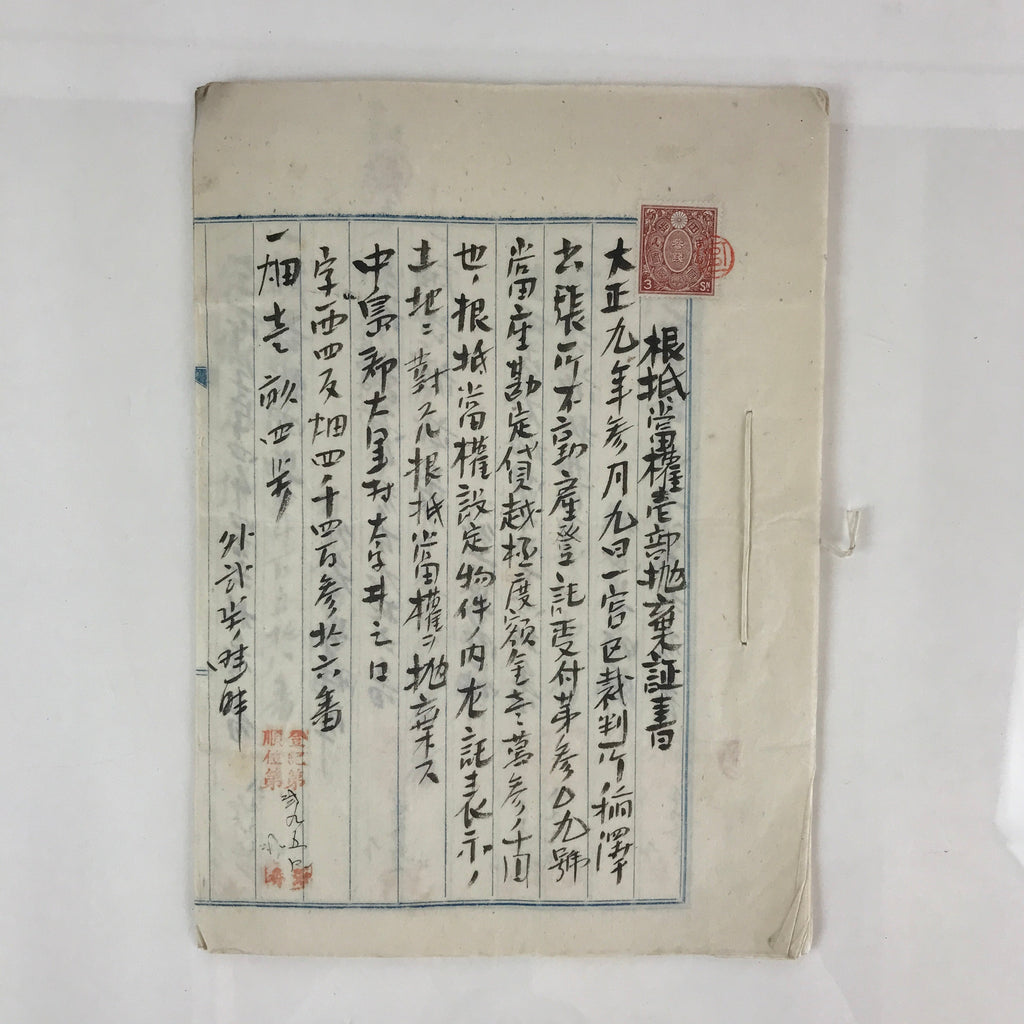 根抵當權壱部抛棄証書
大正九年参月九日一宮区裁判所稲澤
出張所不動産登記受付第参〇九號
當座勘定貸越極度額金壱萬参千円
也ノ根抵當權設定物件ノ内左記表示ノ
土地ニ対スル根抵當權ヲ抛棄ス
中島郡大里村大字井之口
字西四反畑四千四百参拾六番
一畑壱畝四歩
外弐歩畦畔
登記第弐九五
順位第
3 SN